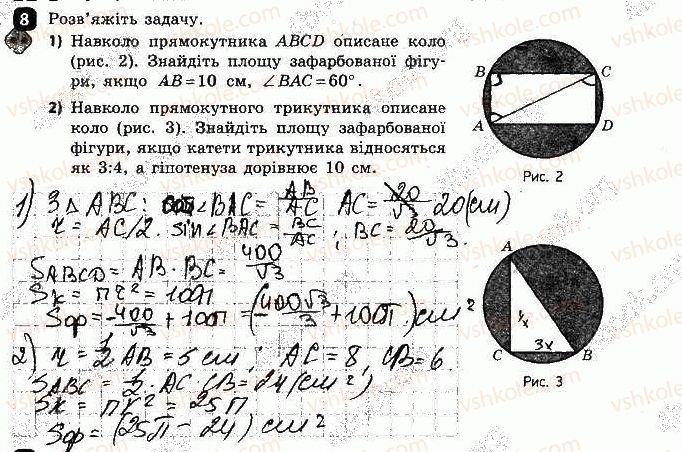 8 Розв'яжіть задачу.
1) Навколо прямокутника ABCD описане коло
(рис. 2). Знайдіть площу зафарбованої фігу-
ри, якщо AB = 10 см, ∠BAC = 60°.
2) Навколо прямокутного трикутника описане
коло (рис. 3). Знайдіть площу зафарбованої
фігури, якщо катети трикутника відносяться
як 3:4, а гіпотенуза дорівнює 10 см.
B C
A D
Рис. 2
1) З △ABC: cos∠BAC = AB/AC AC = 20(см)
r = AC/2. sin∠BAC = BC/AC, BC = 20/√3.
S ABCD = AB · BC = 400/√3
Sк = πr² = 100π
Sф = -400/√3 + 100π = (-400√3/3 + 100π) см²
2) r = 1/2 AB = 5 см; AC = 8, CB = 6.
S ABC = 1/2 · AC · CB = 24 (см²)
Sк = πr² = 25π
Sф = (25π - 24) см²
A
4x
3x
C B
Рис. 3
vshkole.com